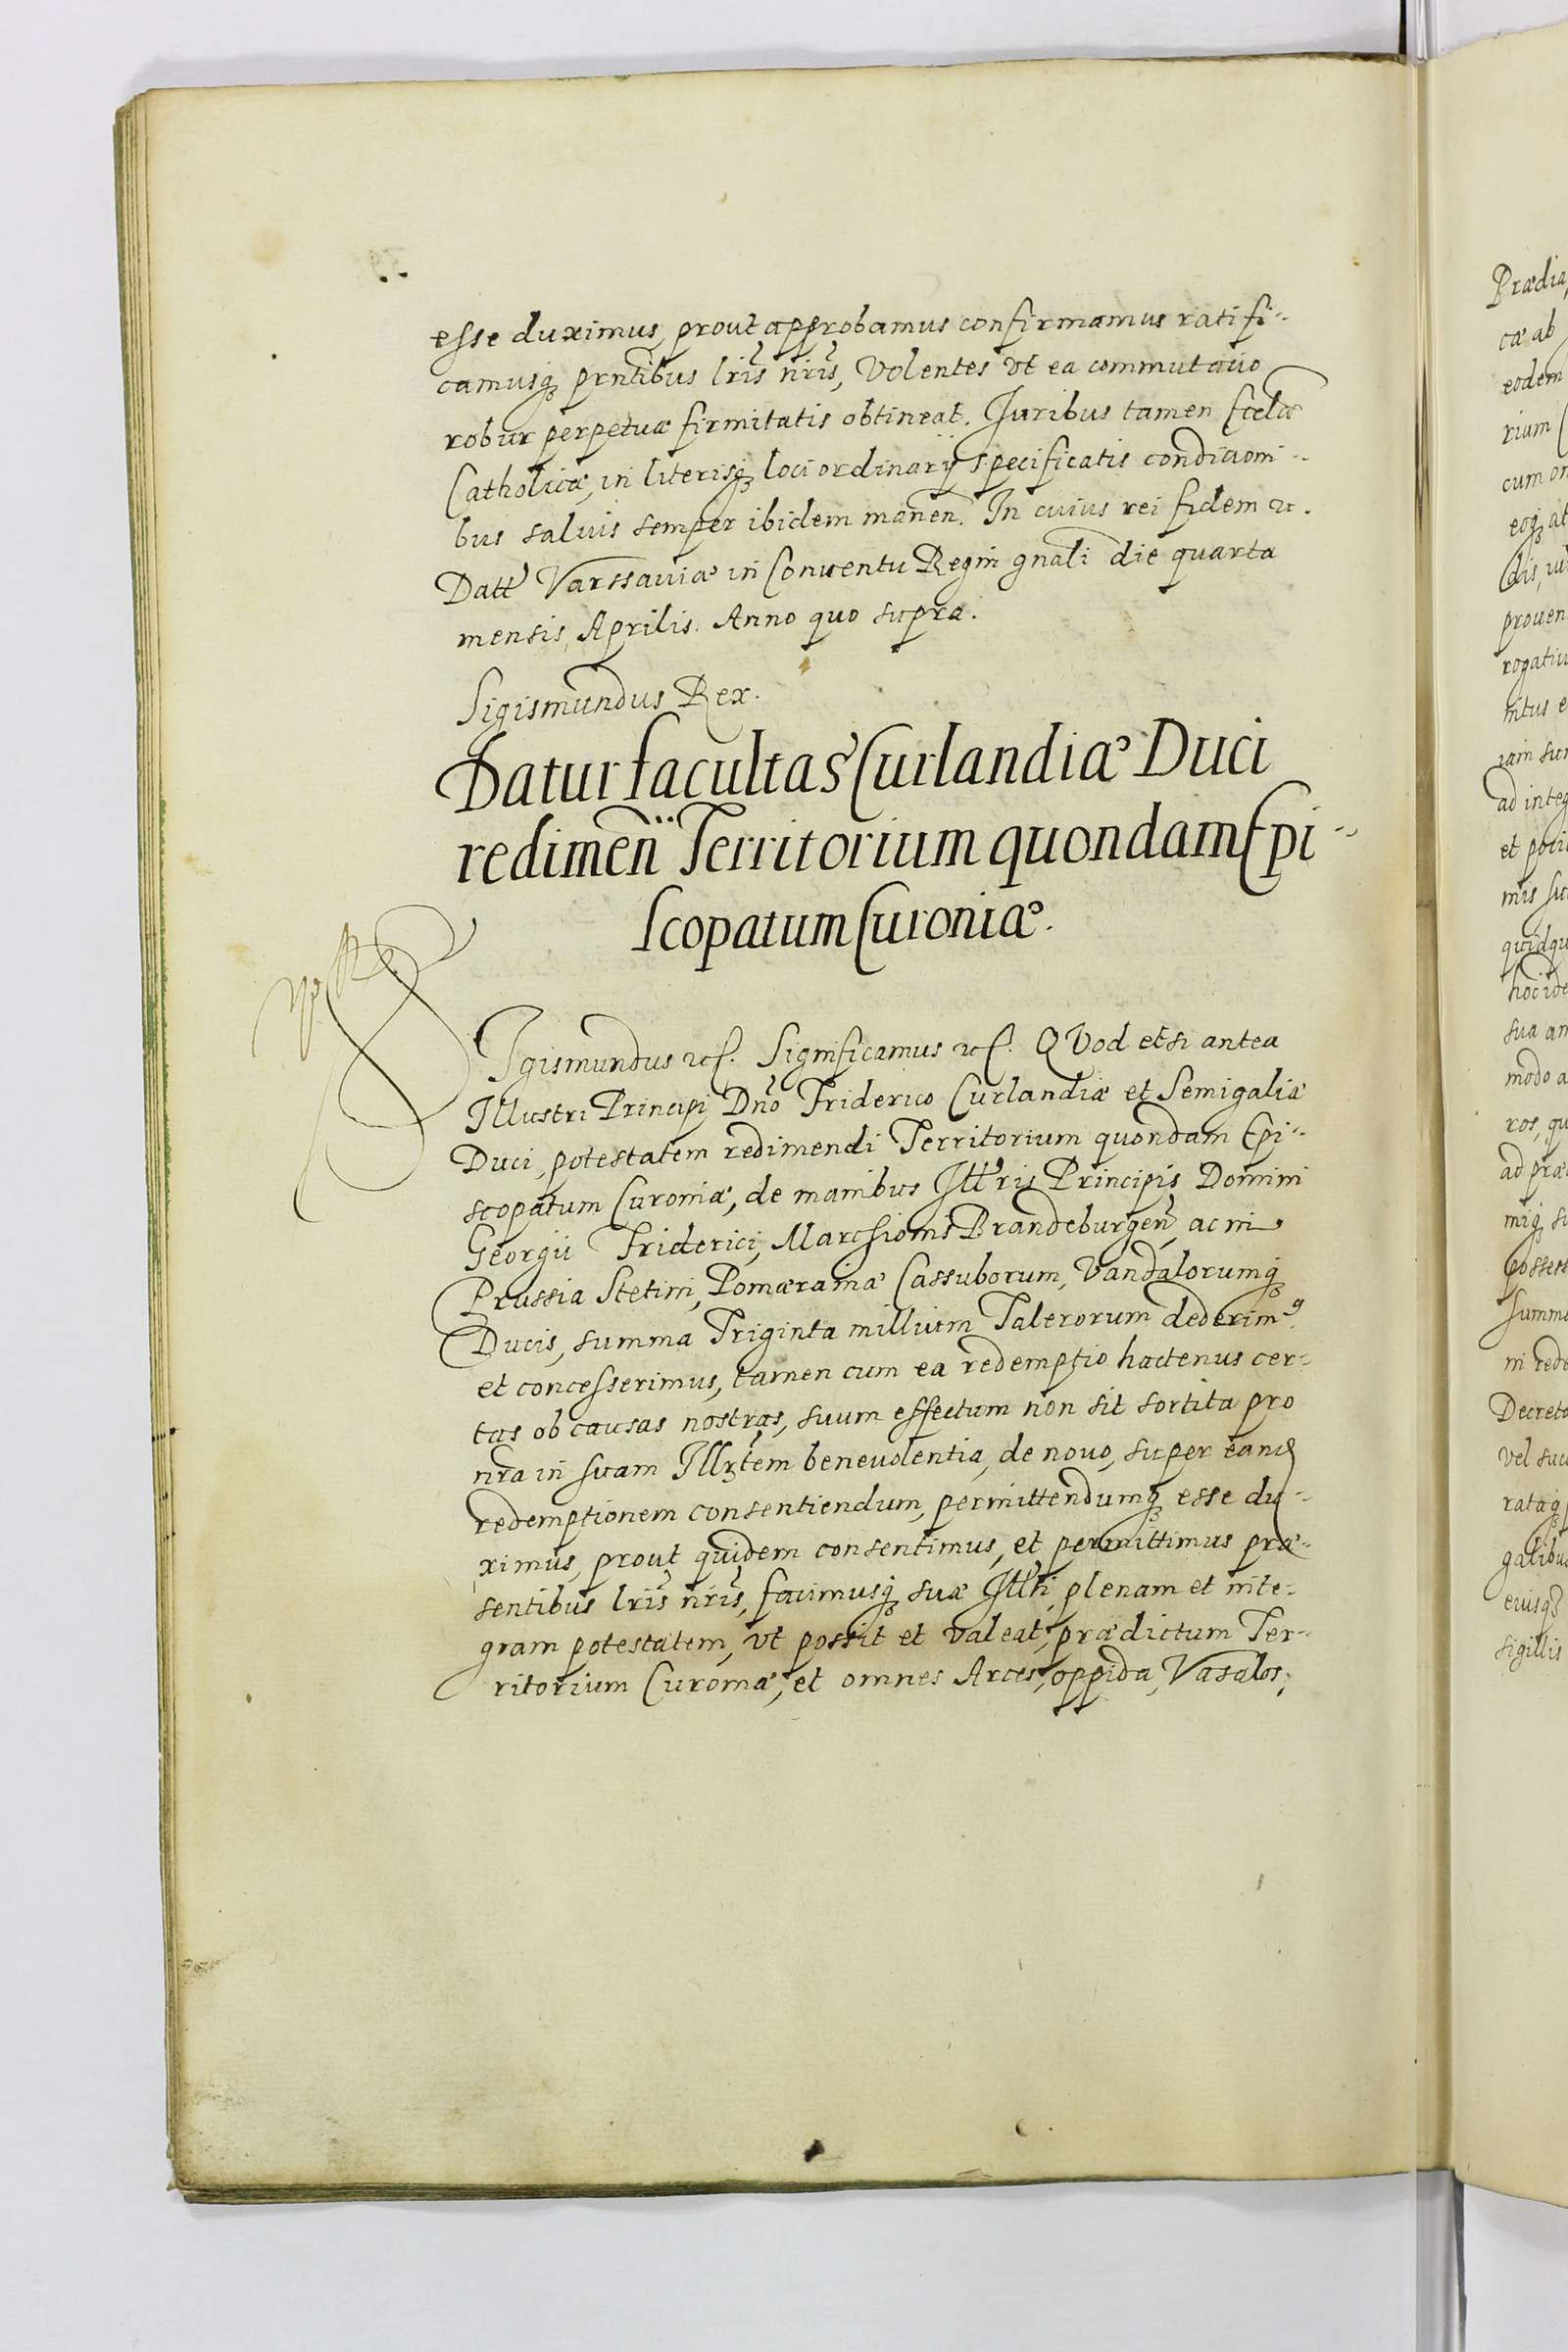 esse duximus, prout approbamus confirmamus ratifi-
camusq3 prntibus lris nris, Volentes vt ea commutatio
robur perpetuæ firmitatis obtineat. Juribus tamen Eccliæ
Catholicæ, in literisq3 loci ordinarij specificatis conditioni-
bus saluis semper ibidem manen. In cuius rei fidem etc.
Datt Varssauiæ in Conuentu Regni gnali die quarta
mensis Aprilis. Anno quo supra.
Sigismundus Rex.
Datur facultas Curlandiæ Duci
redimen Territorium quondam Epi-
scopatum Curoniæ.
SIgismundus etc. Significamus etc. QVod etsi antea
Illustri Principi Dno Friderico Curlandiæ et Semigaliæ
Duci, potestatem redimendi Territorium quondam Epi-
scopatum Curoniæ, de manibus Illris Principis Domini
Georgii Friderici, Marchionis Brandeburgen, ac in
Prussia Stetini, Pomæraniæ Cassuborum, Vandalorumq3
Ducis, summa Triginta millium Talerorum dederim9
et concesserimus, tamen cum ea redemptio hactenus cer-
tas ob causas nostras, suum effectum non sit sortita pro
nra in suam Illrtem beneuolentia, de nouo, super eand
redemptionem consentiendum, permittendumq3 esse du-
ximus, prout quidem consentimus, et permittimus præ-
sentibus lris nris, facimusq3 suæ Illti, plenam et inte-
gram potestatem, vt possit et valeat, prædictum Ter-
ritorium Curoniæ, et omnes Arces, oppida, Vasalos,
Prædia,
cæ ab
eodem
rium
cum om
eoq3 at
prouen
rogatiu
nitus e
iam sum
ad integ
et poti
mis su
quidqu
hoc ide
sua an
modo a
ros, qu
ad præ
miq3 su
possess
summa
ni rede
Decreto
vel suc
rataq3
galibus
eiusq3
sigillis